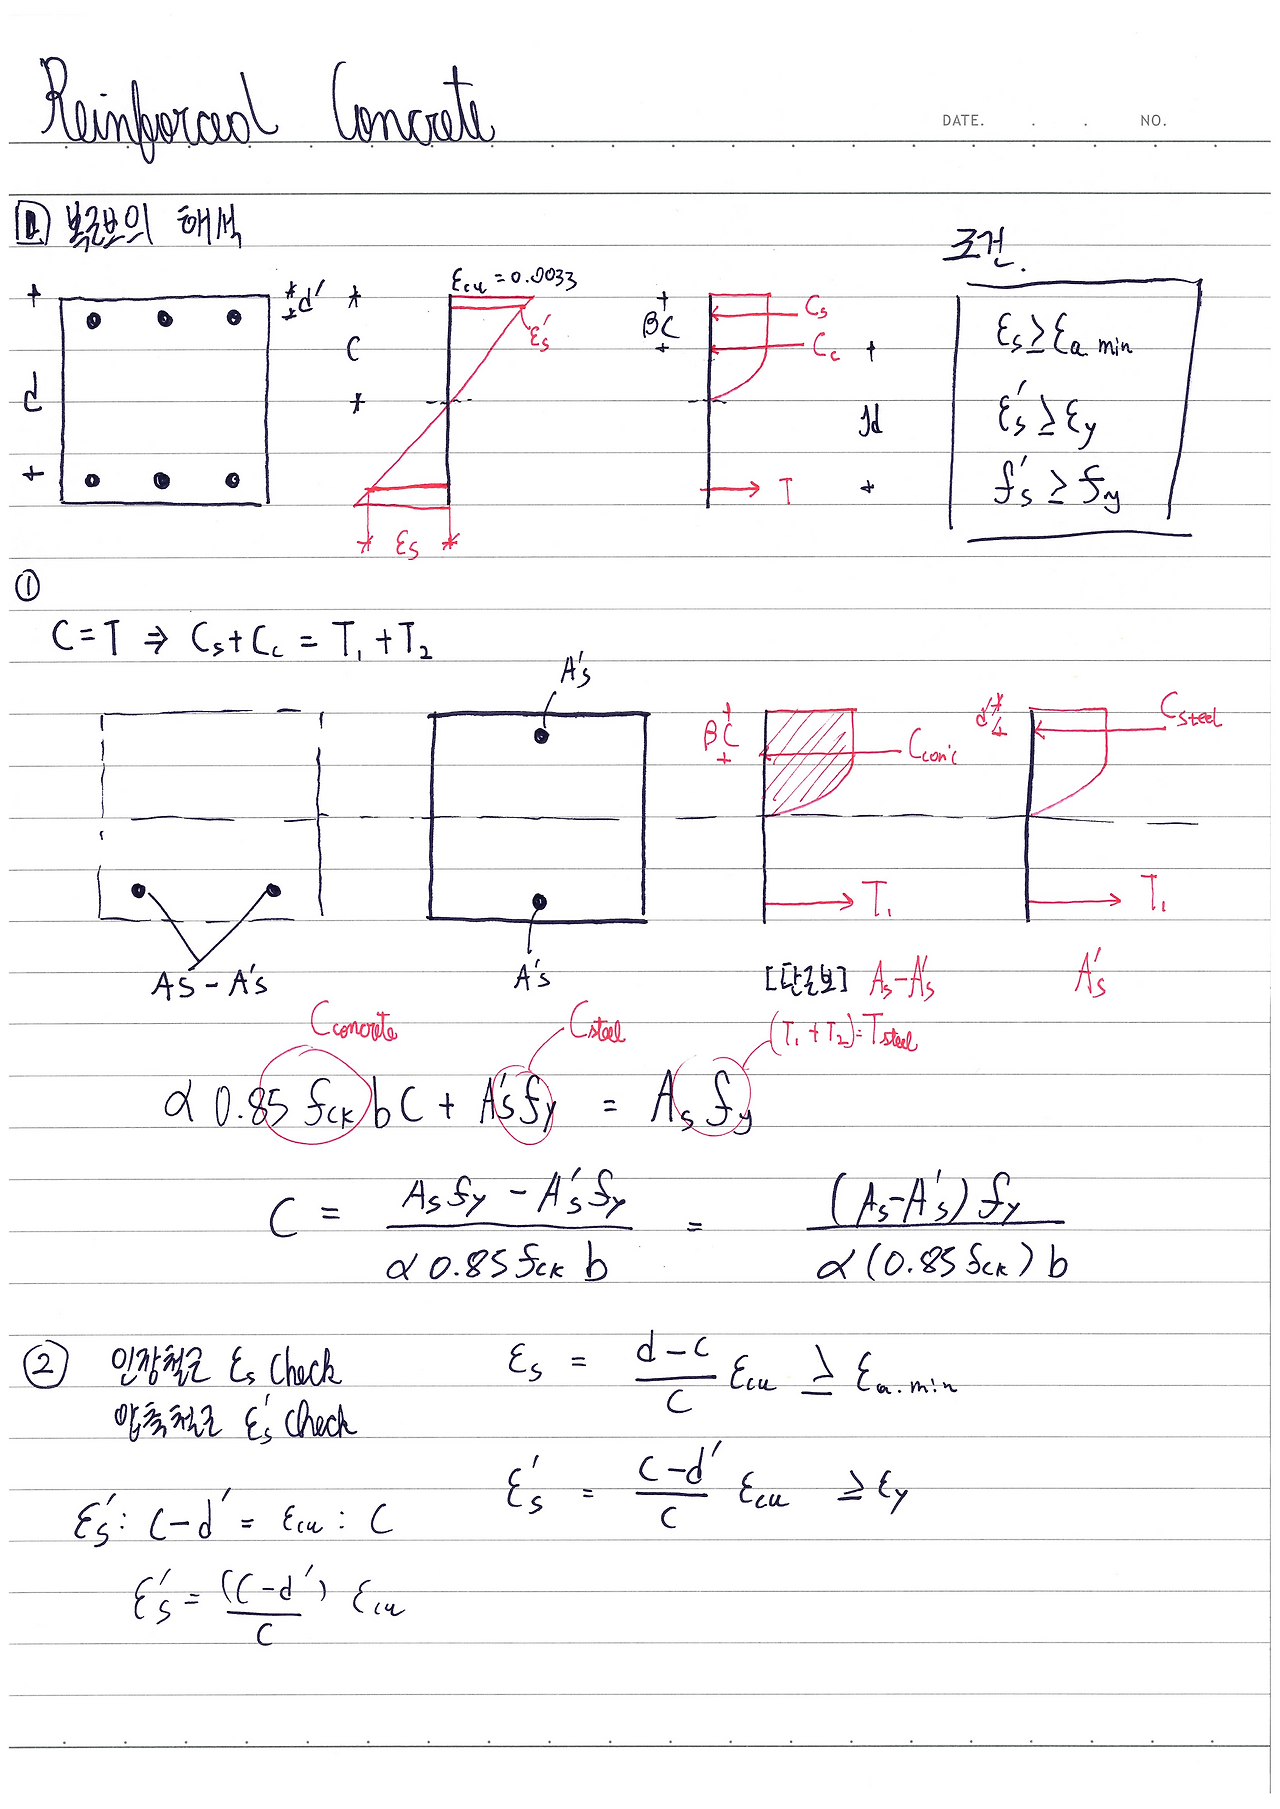 Reinforced Concrete
DATE. . . NO.
1 복근보의 해석
조건.
d
d'
C
εcu = 0.0033
εs'
εs
βC
Cs
Cc
jd
T
εs ≥ εa.min
εs' ≥ εy
fs' ≥ fy
①
C = T ⇒ Cs + Cc = T1 + T2
A's
βC
Cconc
d'
Csteel
T1
T1
As - A's
A's
[단근보] As - A's
A's
Cconcrete
Csteel
(T1 + T2) = Tsteel
α 0.85 fck b C + A's fy = As fy
C = (As fy - A's fy) / (α 0.85 fck b) = ((As - A's) fy) / (α (0.85 fck) b)
② 인장철근 εs check
εs = (d - c) / c εcu ≥ εa.min
압축철근 εs' check
εs' = (c - d') / c εcu ≥ εy
εs' : c - d' = εcu : c
εs' = (c - d') / c εcu